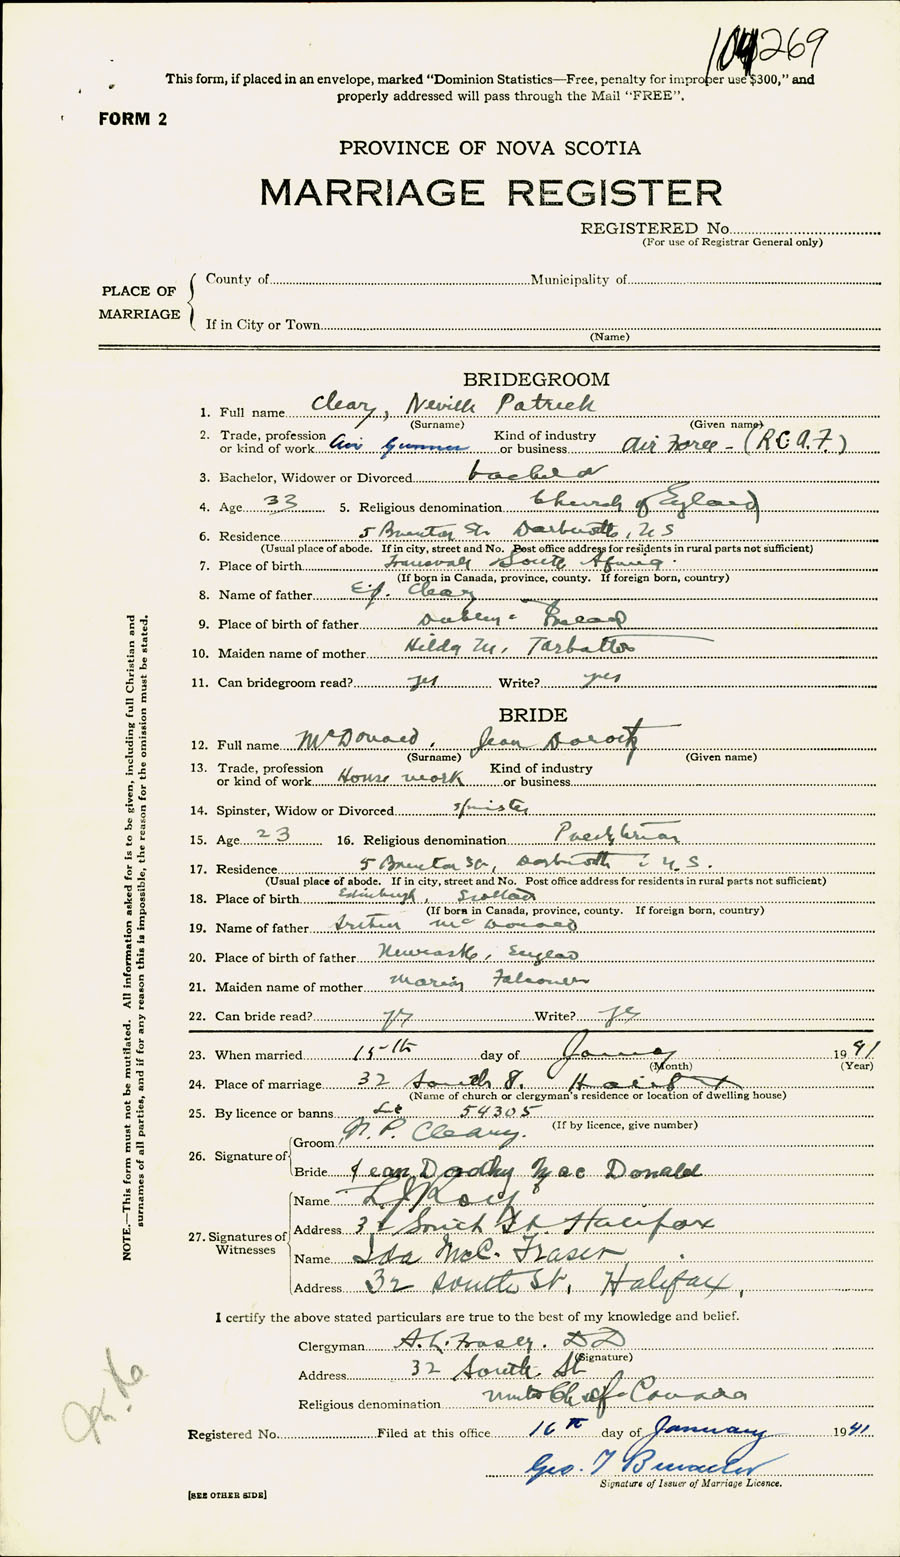 104269
This form, if placed in an envelope, marked “Dominion Statistics—Free, penalty for improper use $300,” and
properly addressed will pass through the Mail “FREE”.
FORM 2
PROVINCE OF NOVA SCOTIA
MARRIAGE REGISTER
REGISTERED No.
(For use of Registrar General only)
PLACE OF MARRIAGE
County of Municipality of
If in City or Town
(Name)
BRIDEGROOM
1. Full name Cleary, Neville Patrick
(Surname) (Given name)
2. Trade, profession or kind of work Air Gunner Kind of industry or business Air Force - (R.C.A.F.)
3. Bachelor, Widower or Divorced bachelor
4. Age 33 5. Religious denomination Church of England
6. Residence 5 St. Dartmouth, N S
(Usual place of abode. If in city, street and No. Post office address for residents in rural parts not sufficient)
7. Place of birth Transvaal South Africa.
(If born in Canada, province, county. If foreign born, country)
8. Name of father E.J. Cleary
9. Place of birth of father Dublin - Ireland
10. Maiden name of mother Hilda M.
11. Can bridegroom read? yes Write? yes
BRIDE
12. Full name McDonald, Jean Dorothy
(Surname) (Given name)
13. Trade, profession or kind of work House work Kind of industry or business
14. Spinster, Widow or Divorced spinster
15. Age 23 16. Religious denomination Presbyterian
17. Residence 5 St., Dartmouth, N.S.
(Usual place of abode. If in city, street and No. Post office address for residents in rural parts not sufficient)
18. Place of birth Edinburgh, Scotland
(If born in Canada, province, county. If foreign born, country)
19. Name of father Arthur McDonald
20. Place of birth of father Newcastle, England
21. Maiden name of mother Falconer
22. Can bride read? yes Write? yes
23. When married 15th day of January 1941
(Month) (Year)
24. Place of marriage 32 South St. Halifax
(Name of church or clergyman's residence or location of dwelling house)
25. By licence or banns Lic 54305
(If by licence, give number)
26. Signature of
Groom N. P. Cleary.
Bride Jean Dorothy Mac Donald
27. Signatures of Witnesses
Name
Address 32 South St. Halifax
Name Ida McC. Fraser
Address 32 South St., Halifax,
I certify the above stated particulars are true to the best of my knowledge and belief.
Clergyman A. L. Fraser. D D
(Signature)
Address 32 South St
Religious denomination United Ch. of Canada
Registered No. Filed at this office 16th day of January 1941
Geo. T
Signature of Issuer of Marriage Licence.
[SEE OTHER SIDE]
NOTE.—This form must not be mutilated. All information asked for is to be given, including full Christian and
surnames of all parties, and if for any reason this is impossible, the reason for the omission must be stated.